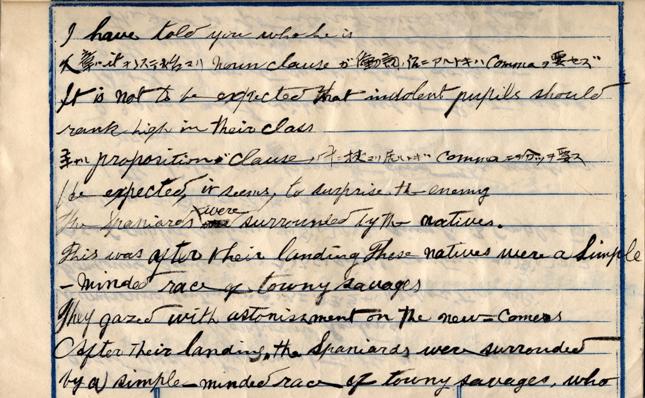 I have told you who he is
noun clause ガ動詞 アルトキハ Comma ヲ要セズ
It is not to be expected that indolent pupils should
rank high in their class
proposition clause comma ヲ要ス
He expected, it seems, to surprise the enemy
The Spaniards were surrounded by the natives.
This was after their landing These natives were a simple
- minded race of towny savages
They gazed with astonishment on the new=comers
After their landing, the Spaniards were surrounded
by a simple-minded race of towny savages, who